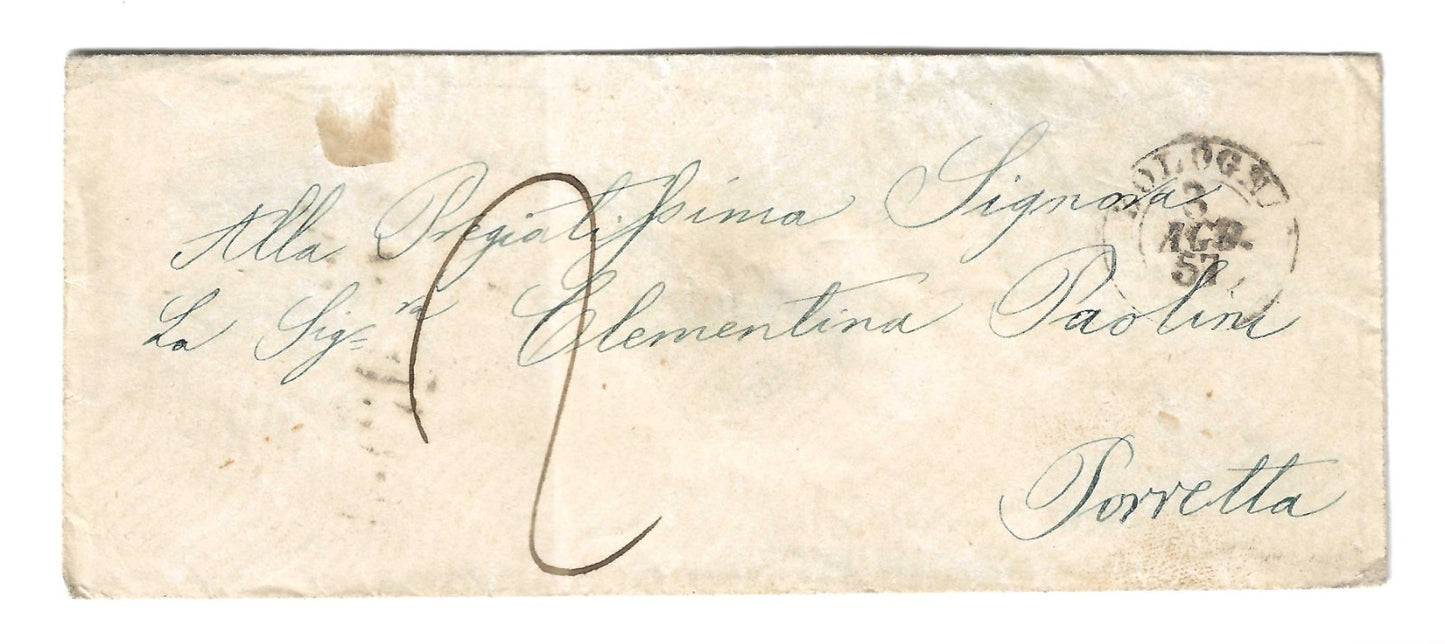 BOLOGNA
3
AGO.
57
Alla Pregiatissima Signora
La Sig.ra Clementina Paolini
Porretta
2